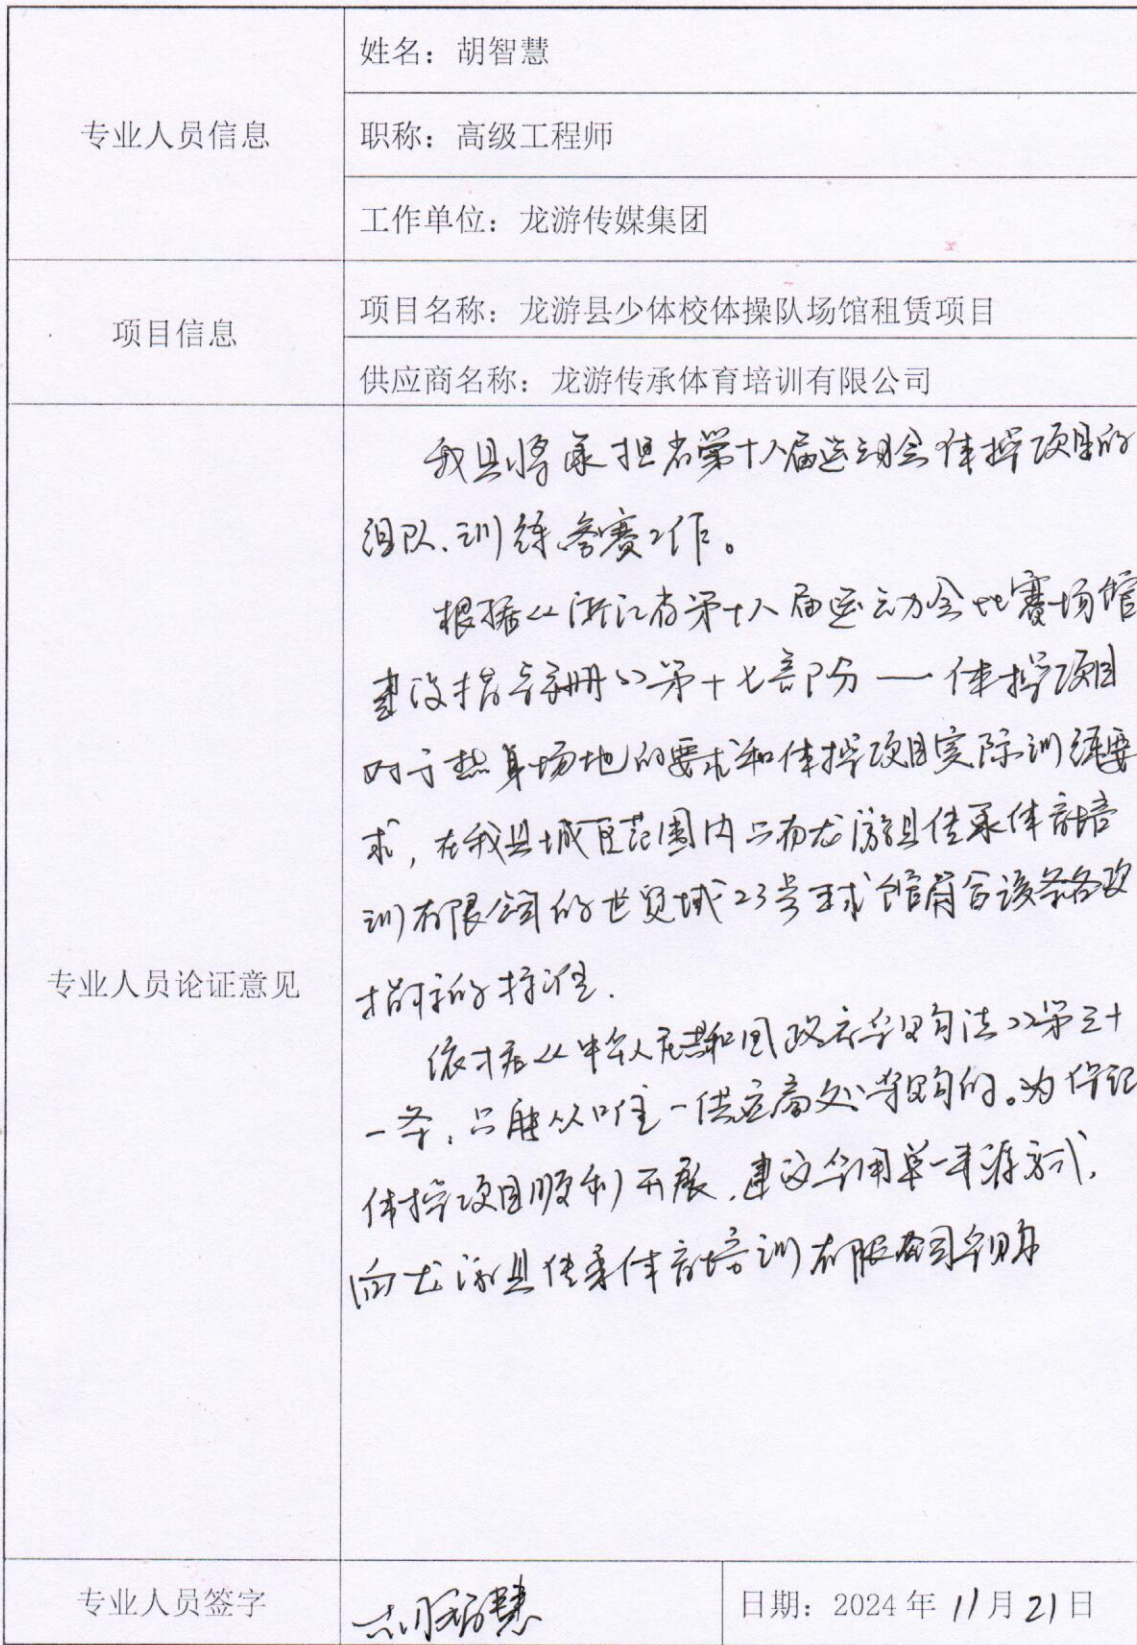 专业人员信息
姓名：胡智慧
职称：高级工程师
工作单位：龙游传媒集团
项目信息
项目名称：龙游县少体校体操队场馆租赁项目
供应商名称：龙游传承体育培训有限公司
专业人员论证意见
我县将承担省第十八届运动会体操项目的
组队、训练、参赛工作。
根据《浙江省第十八届运动会比赛场馆
建设指导手册》第十七部分—体操项目
对于热身场地的要求和体操项目实际训练要
求，在我县城区范围内只有龙游县传承体育培
训有限公司的世贸城23号球馆符合该条各项
指标的标准.
依据《中华人民共和国政府采购法》第三十
一条，只能从唯一供应商处采购的。为保证
体操项目顺利开展，建议采用单一来源方式，
向龙游县传承体育培训有限公司采购
专业人员签字
胡智慧
日期：2024年11月21日